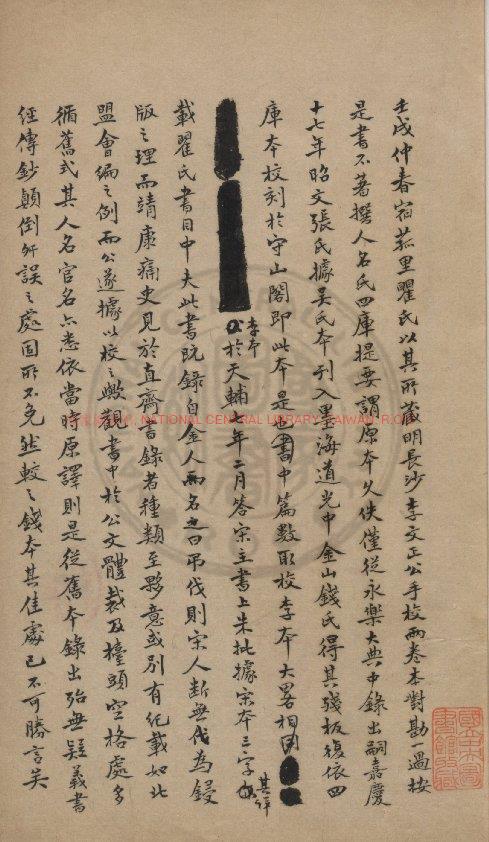 壬戌仲春宿菰里瞿氏以其所藏明長沙李文正公手校兩卷本對勘一過按
是書不著撰人名氏四庫提要謂原本久佚僅從永樂大典中錄出嗣嘉慶
十七年昭文張氏據吳氏本刊入墨海道光中金山錢氏得其殘板復依四
庫本校刻於守山閣即此本是書中篇數取校李本大畧相同
李本於天輔七年二月答宋主書上朱批據宋本三字其詳
載瞿氏書目中夫此書既錄自金人而名之曰弔伐則宋人斷無代為鋟
版之理而靖康痛史見於直齋書錄者種類至夥意或別有紀載如北
盟會編之例而公遂據以校之歟觀書中於公文體裁及擡頭空格處多
循舊式其人名官名亦悉依當時原譯則是從舊本錄出殆無疑義書
經傳鈔顛倒舛誤之處固所不免然較之錢本其佳處已不可勝言矣
NATIONAL CENTRAL LIBRARY, TAIWAN, R.O.C